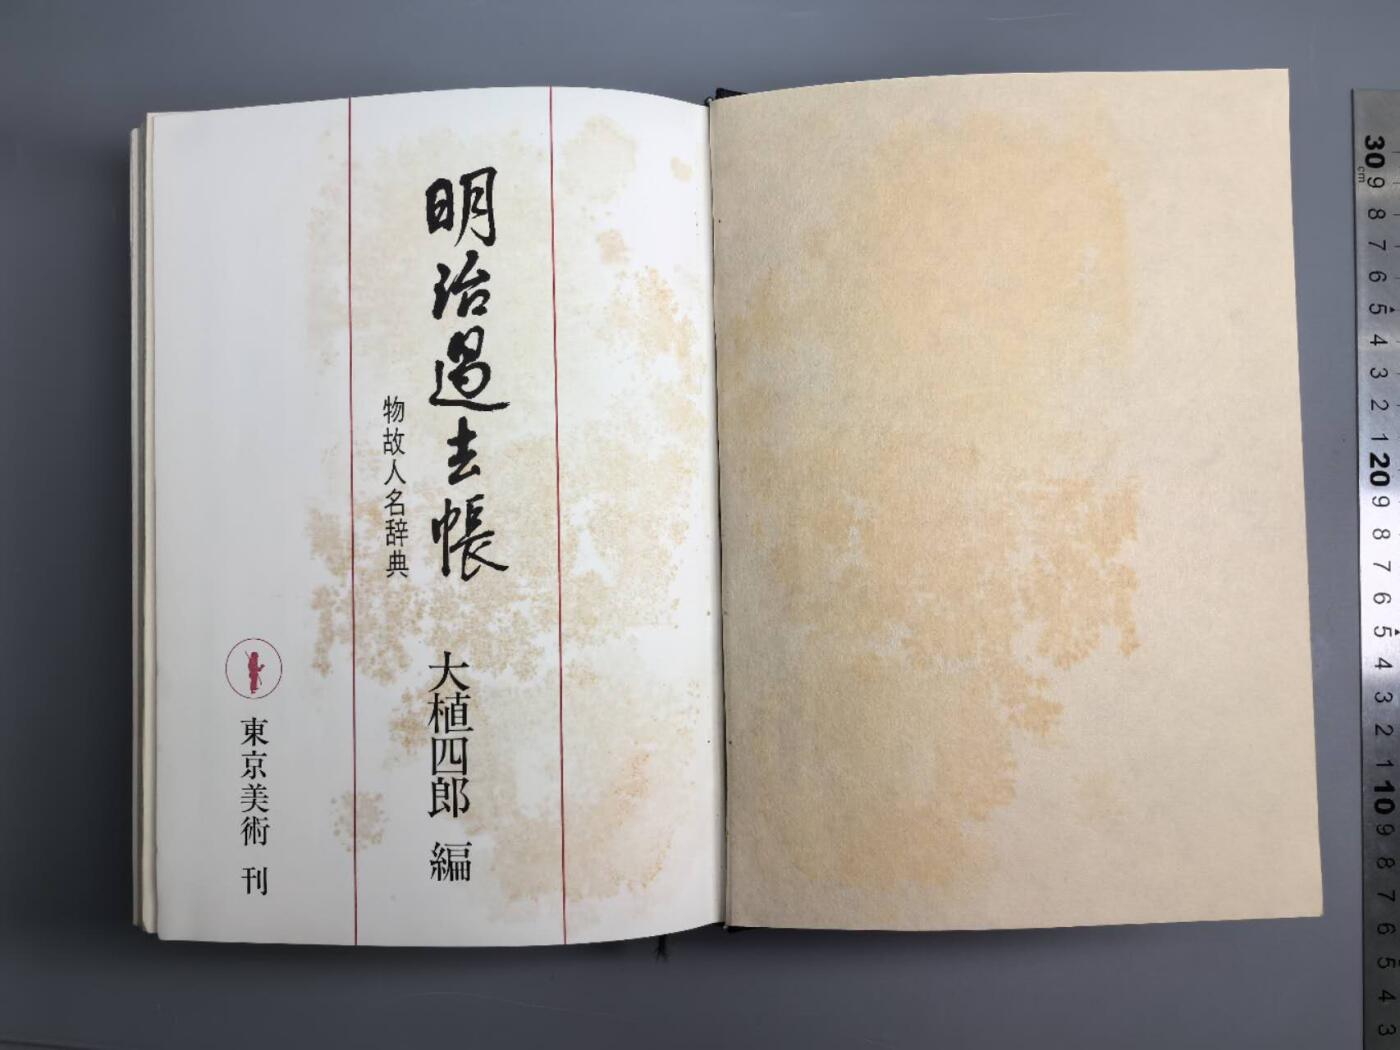 明治過去帳
物故人名辞典
大植四郎 編
東京美術 刊
30
cm
9
8
7
6
5
4
3
2
1
20
9
8
7
6
5
4
3
2
1
10
9
8
7
6
5
4
3